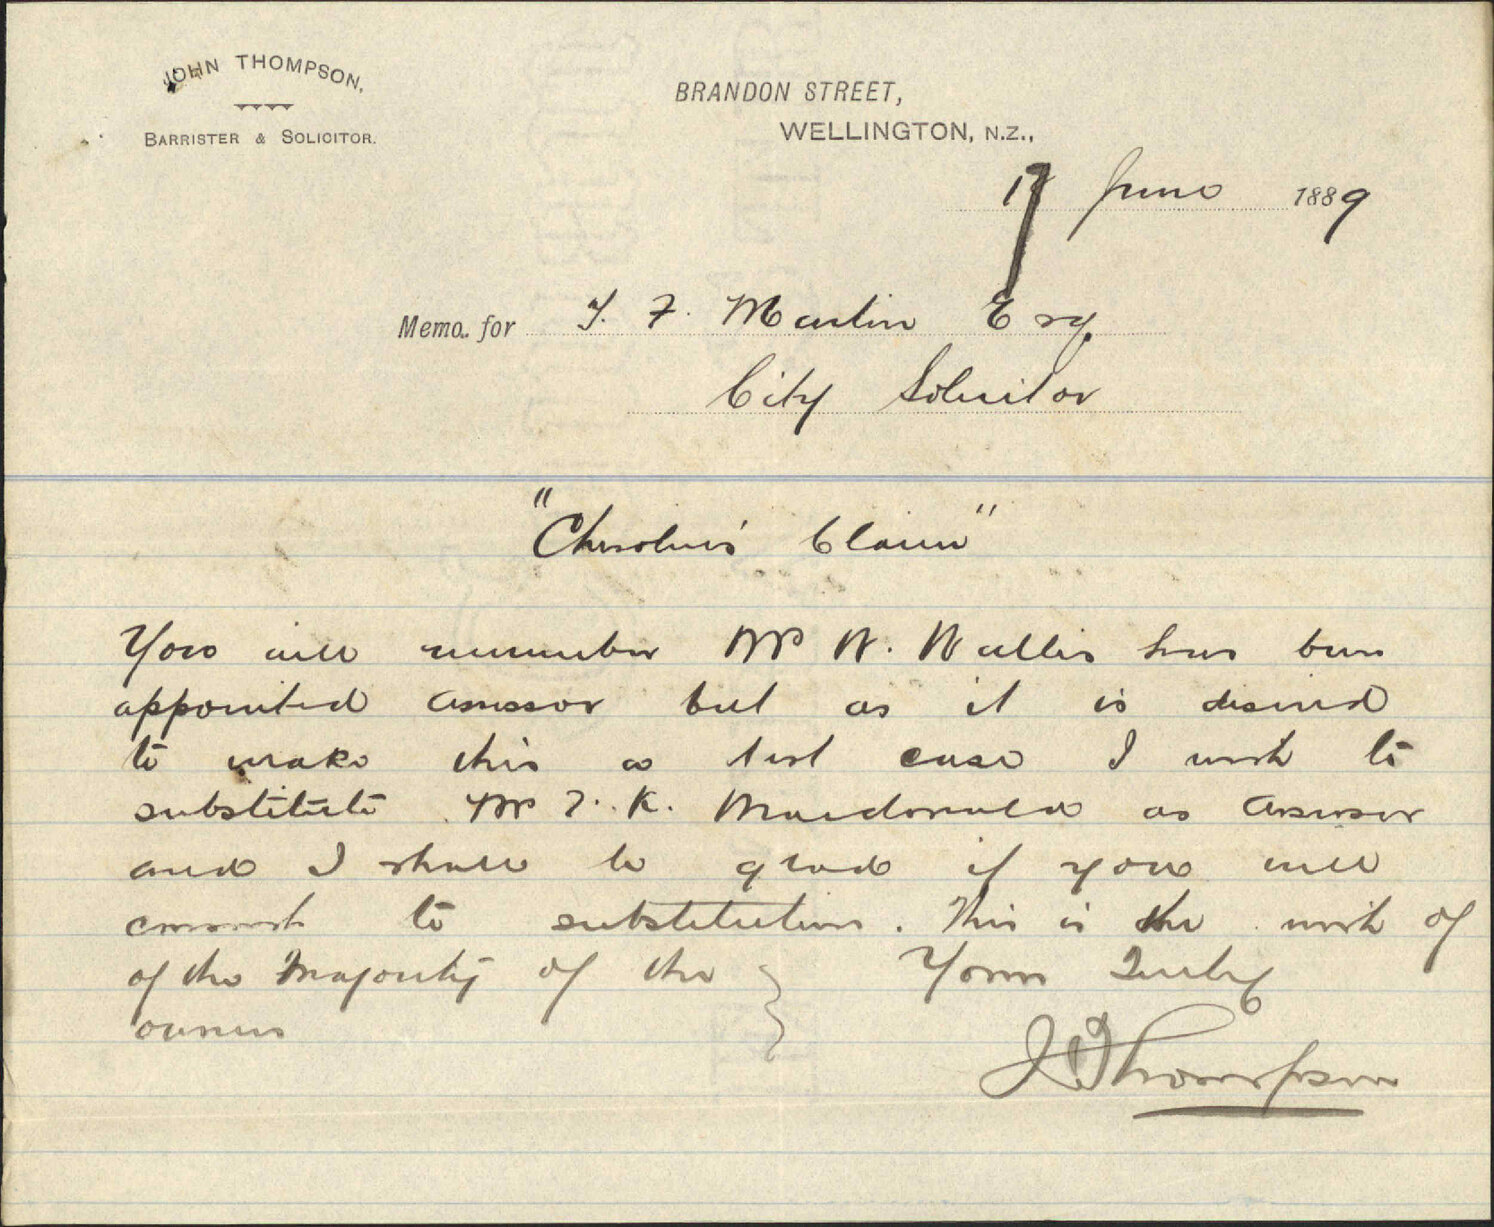 JOHN THOMPSON,
BARRISTER & SOLICITOR.
BRANDON STREET,
WELLINGTON, N.Z.,
17 June 1889
Memo. for T. F. Martin Esq
City Solicitor
"Chisholm's Claim"
You will remember Mr W. Wallis has been
appointed assessor but as it is desired
to make this a test case I wish to
substitute Mr T. K. Macdonald as assessor
and I shall be glad if you will
consent to substitution. This is the wish of
of the Majority of the
owners
Yours Truly
J Thompson